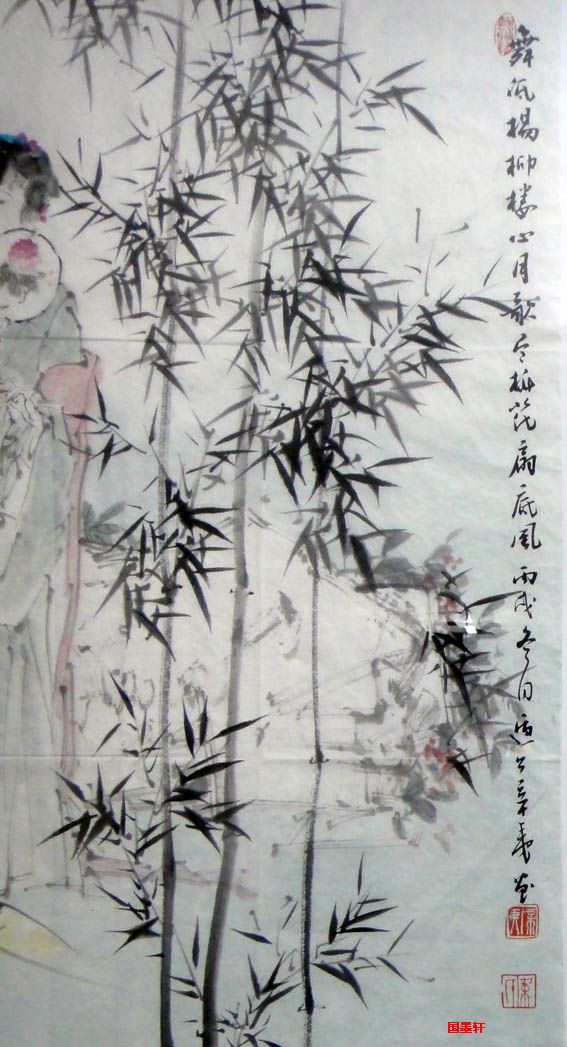 舞低楊柳楼心月歌尽桃花扇底風 丙戌冬日
国墨轩